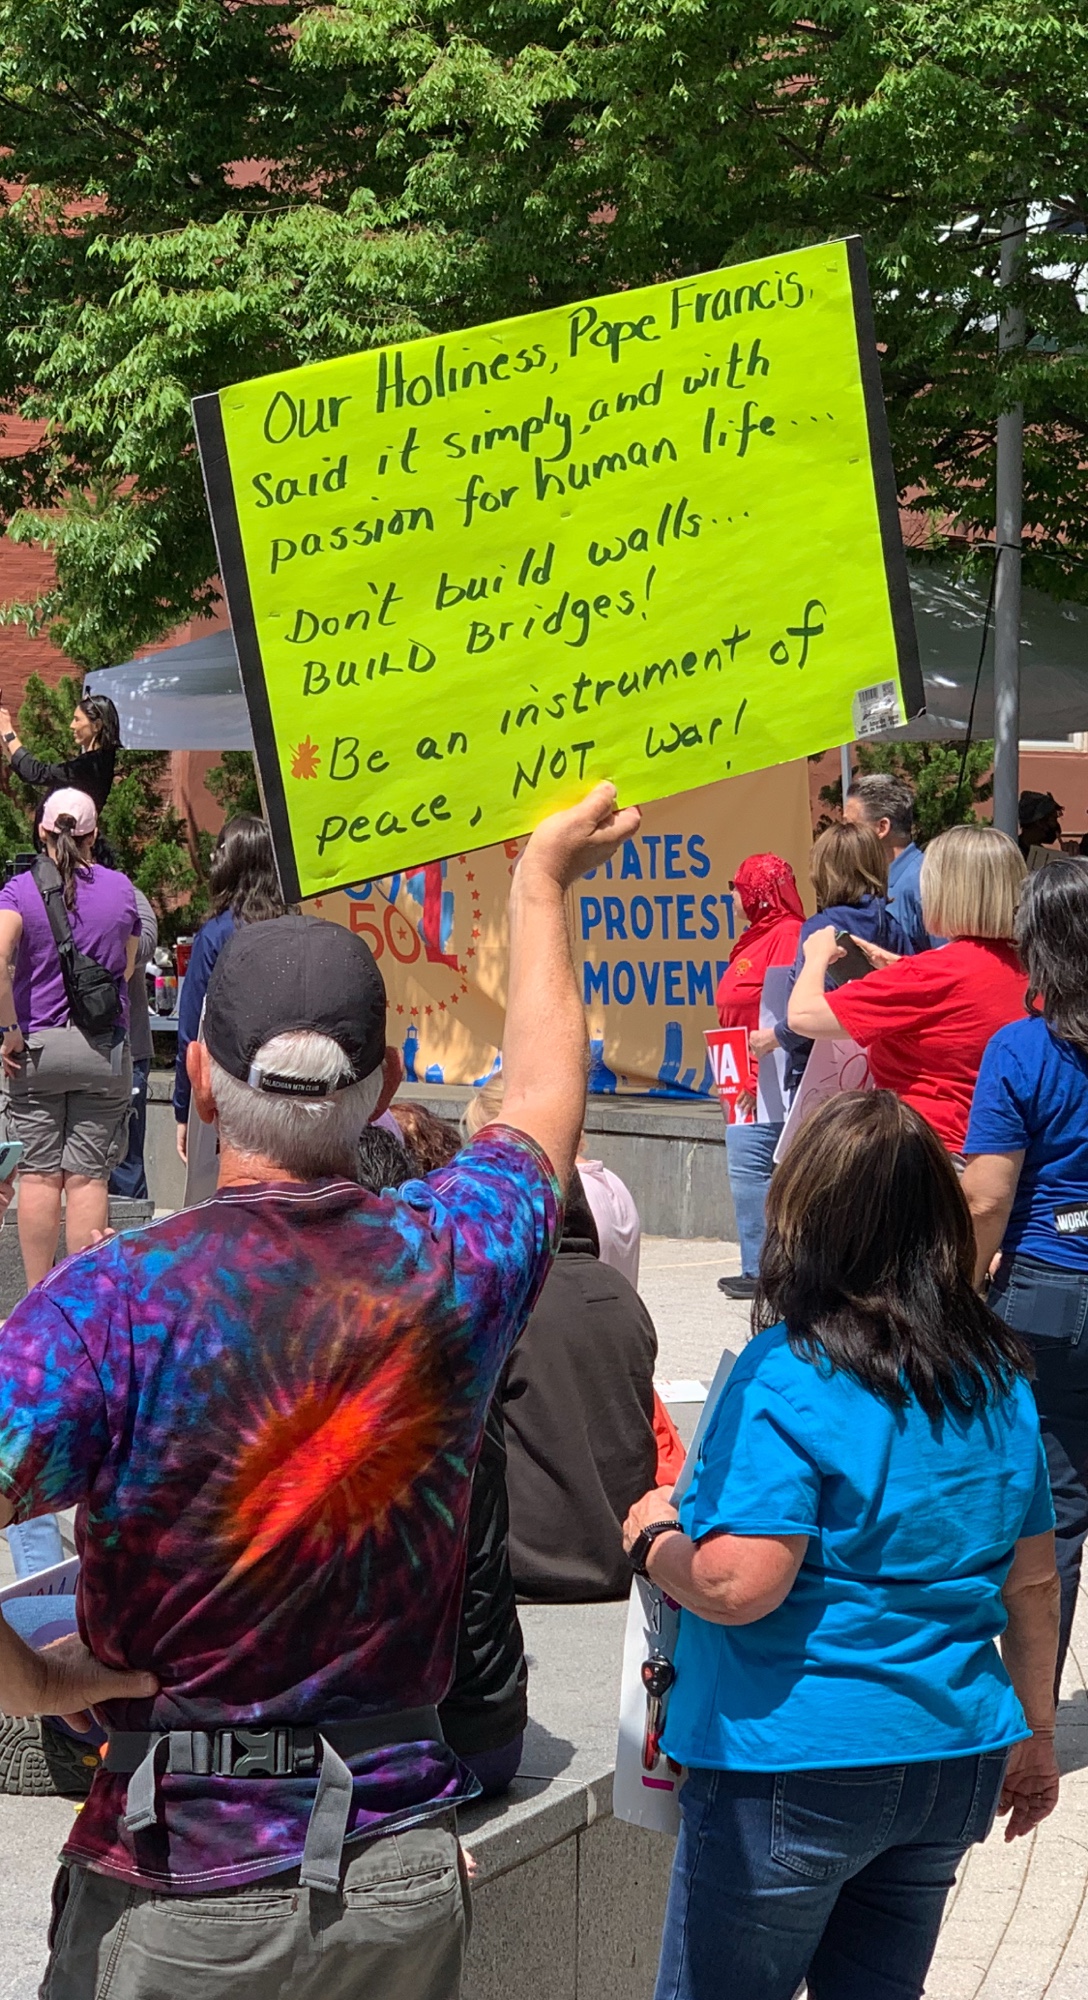 Our Holiness, Pope Francis,
said it simply, and with
passion for human life...
Don't build walls...
BUILD Bridges!
Be an instrument of
peace, NOT War!
50
STATES
PROTEST
MOVEM
VA
PALACHIAN MTN CLUB
WORK